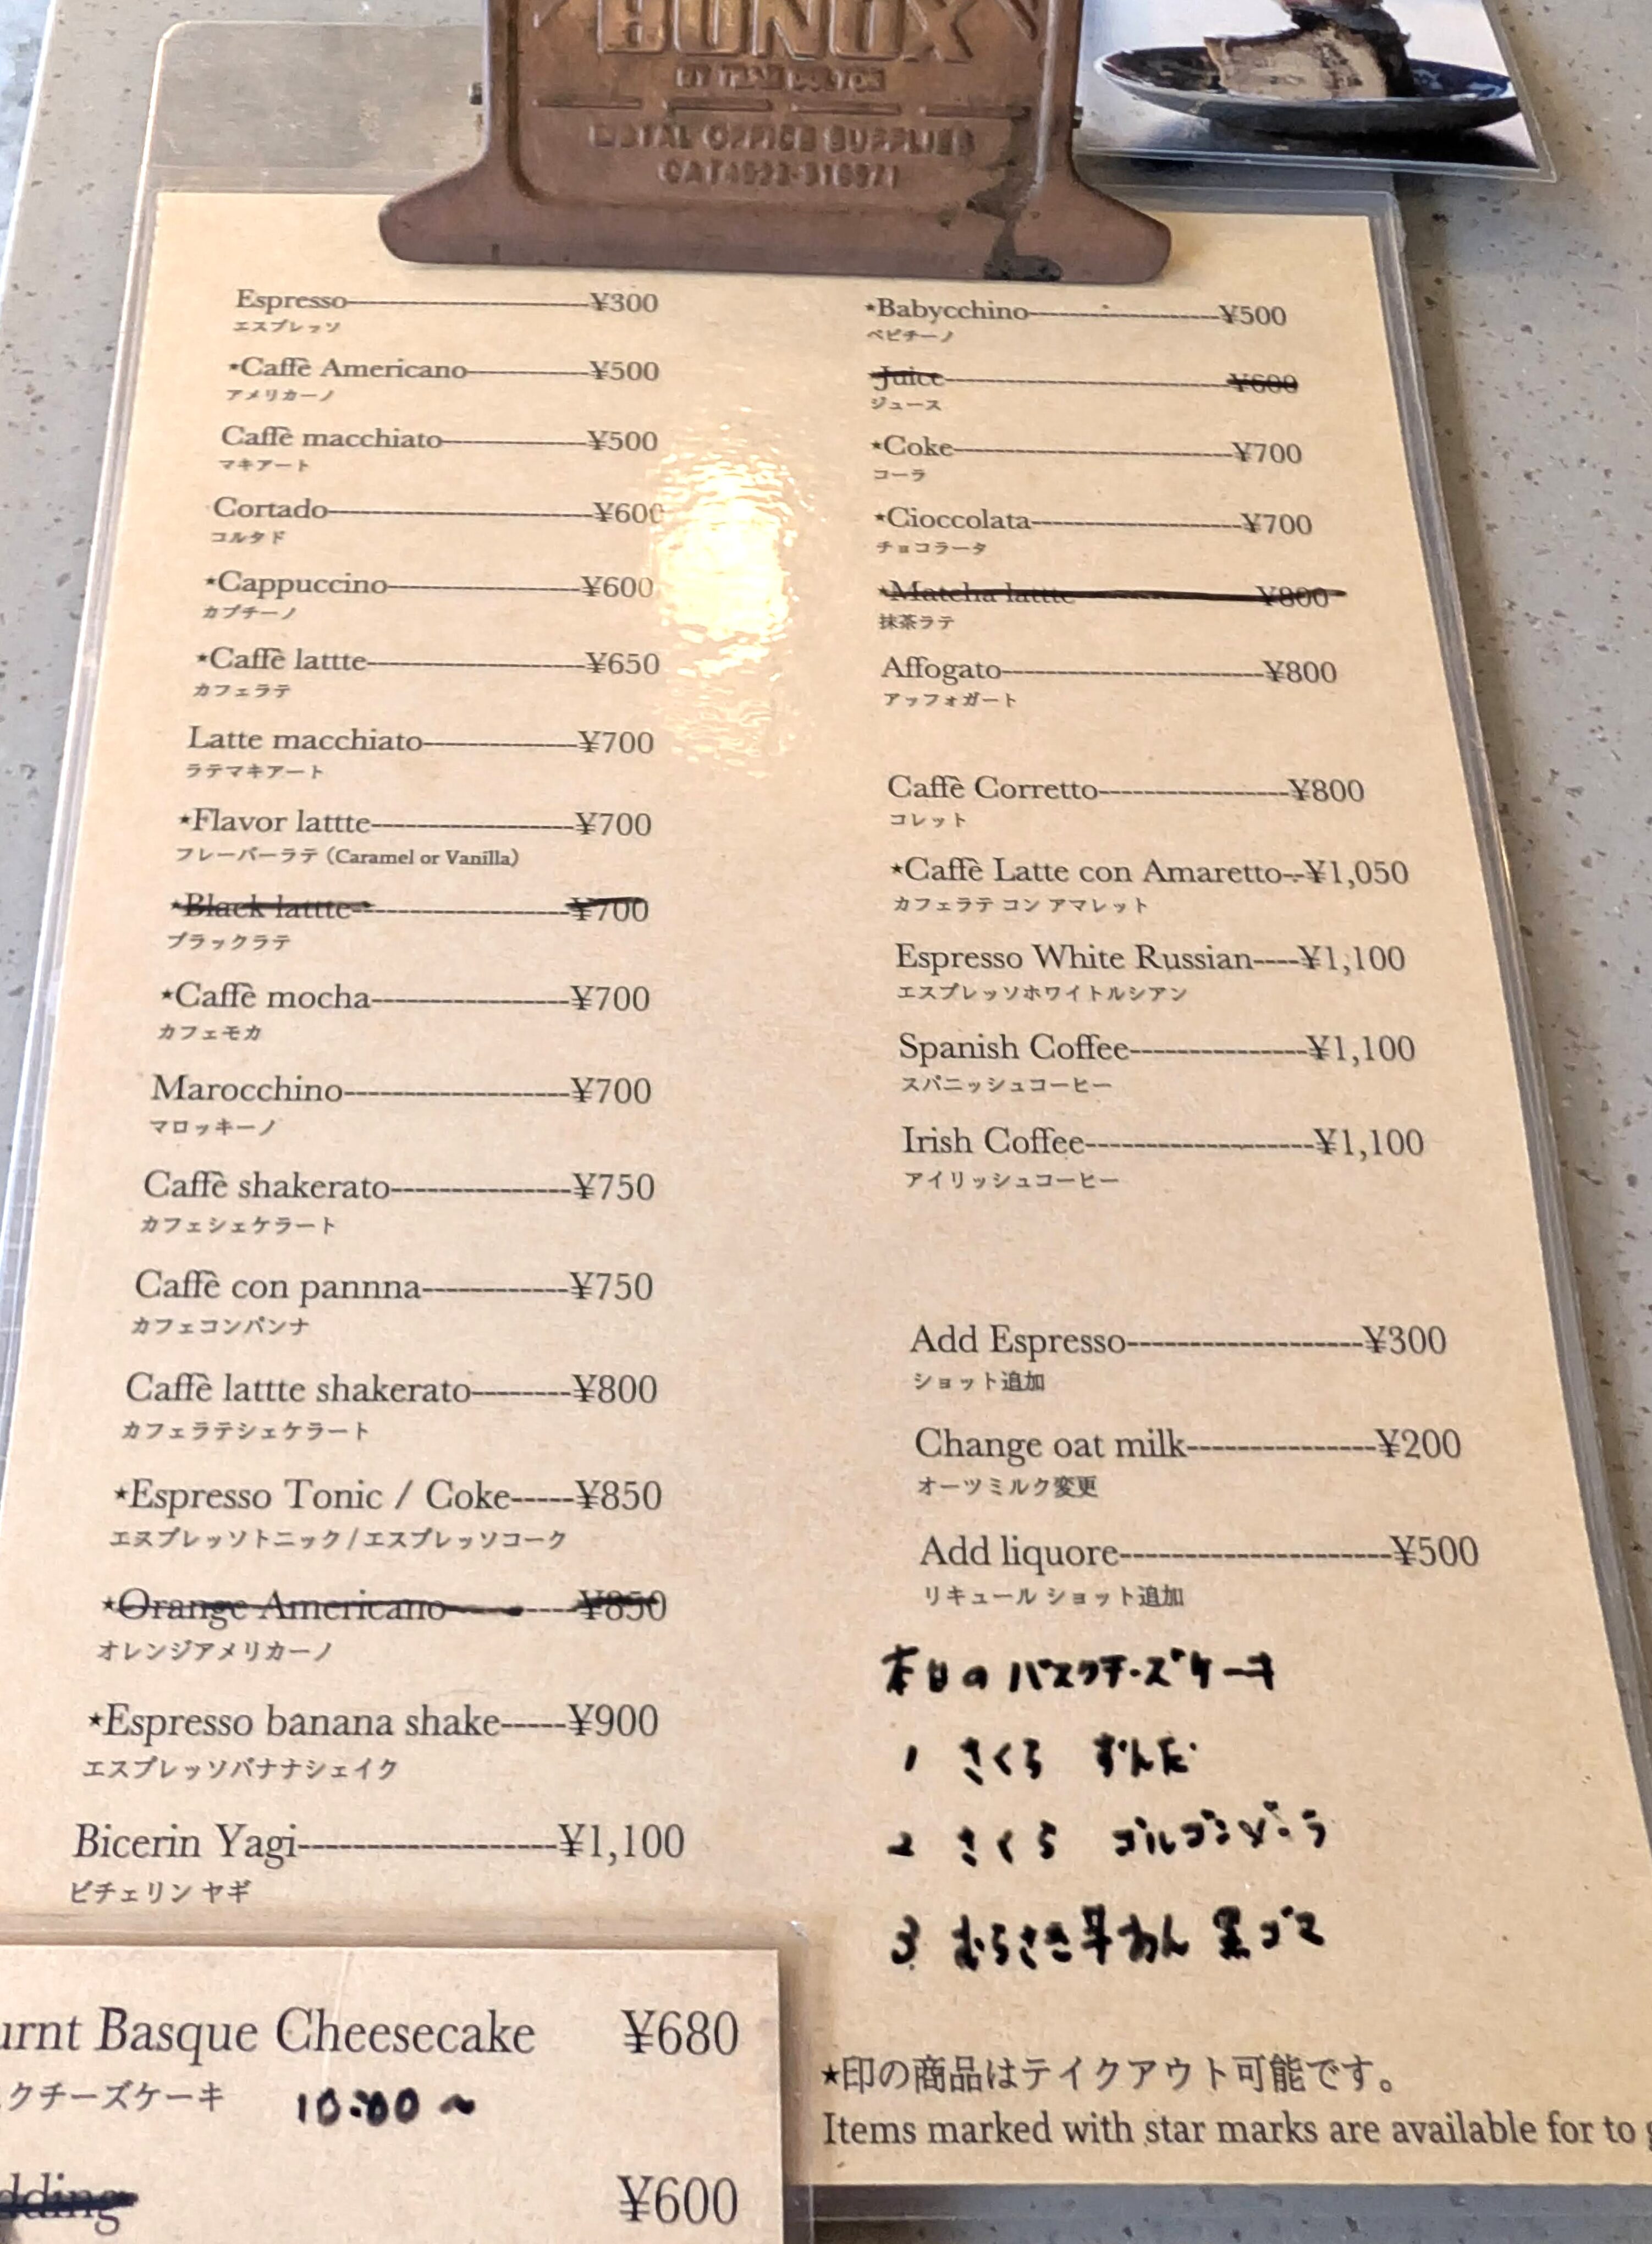 BONOX
METAL OFFICE SUPPLIES
Espresso------------------------¥300
エスプレッソ
★Caffè Americano------------¥500
アメリカーノ
Caffè macchiato--------------¥500
マキアート
Cortado------------------------¥600
コルタド
★Cappuccino------------------¥600
カプチーノ
★Caffè lattte-------------------¥650
カフェラテ
Latte macchiato--------------¥700
ラテマキアート
★Flavor lattte------------------¥700
フレーバーラテ (Caramel or Vanilla)
★Black lattte-------------------¥700
ブラックラテ
★Caffè mocha-----------------¥700
カフェモカ
Marocchino-------------------¥700
マロッキーノ
Caffè shakerato---------------¥750
カフェシェケラート
Caffè con pannna------------¥750
カフェコンパンナ
Caffè lattte shakerato--------¥800
カフェラテシェケラート
★Espresso Tonic / Coke-----¥850
エスプレッソトニック / エスプレッソコーク
★Orange Americano----------¥850
オレンジアメリカーノ
★Espresso banana shake-----¥900
エスプレッソバナナシェイク
Bicerin Yagi-------------------¥1,100
ビチェリン ヤギ
★Babycchino------------------¥500
ベビチーノ
Juice--------------------------¥600
ジュース
★Coke--------------------------¥700
コーラ
★Cioccolata-------------------¥700
チョコラータ
★Matcha lattte----------------¥800
抹茶ラテ
Affogato-----------------------¥800
アッフォガート
Caffè Corretto----------------¥800
コレット
★Caffè Latte con Amaretto--¥1,050
カフェラテ コン アマレット
Espresso White Russian----¥1,100
エスプレッソホワイトルシアン
Spanish Coffee---------------¥1,100
スパニッシュコーヒー
Irish Coffee------------------¥1,100
アイリッシュコーヒー
Add Espresso------------------¥300
ショット追加
Change oat milk---------------¥200
オーツミルク変更
Add liquore--------------------¥500
リキュール ショット追加
本日の バスクチーズケーキ
1 さくら ずんだ
2 さくら ゴルゴンゾーラ
3 むらさき芋あん 黒ゴマ
★印の商品はテイクアウト可能です。
Items marked with star marks are available for to
urnt Basque Cheesecake ¥680
クチーズケーキ 10:00~
dding ¥600